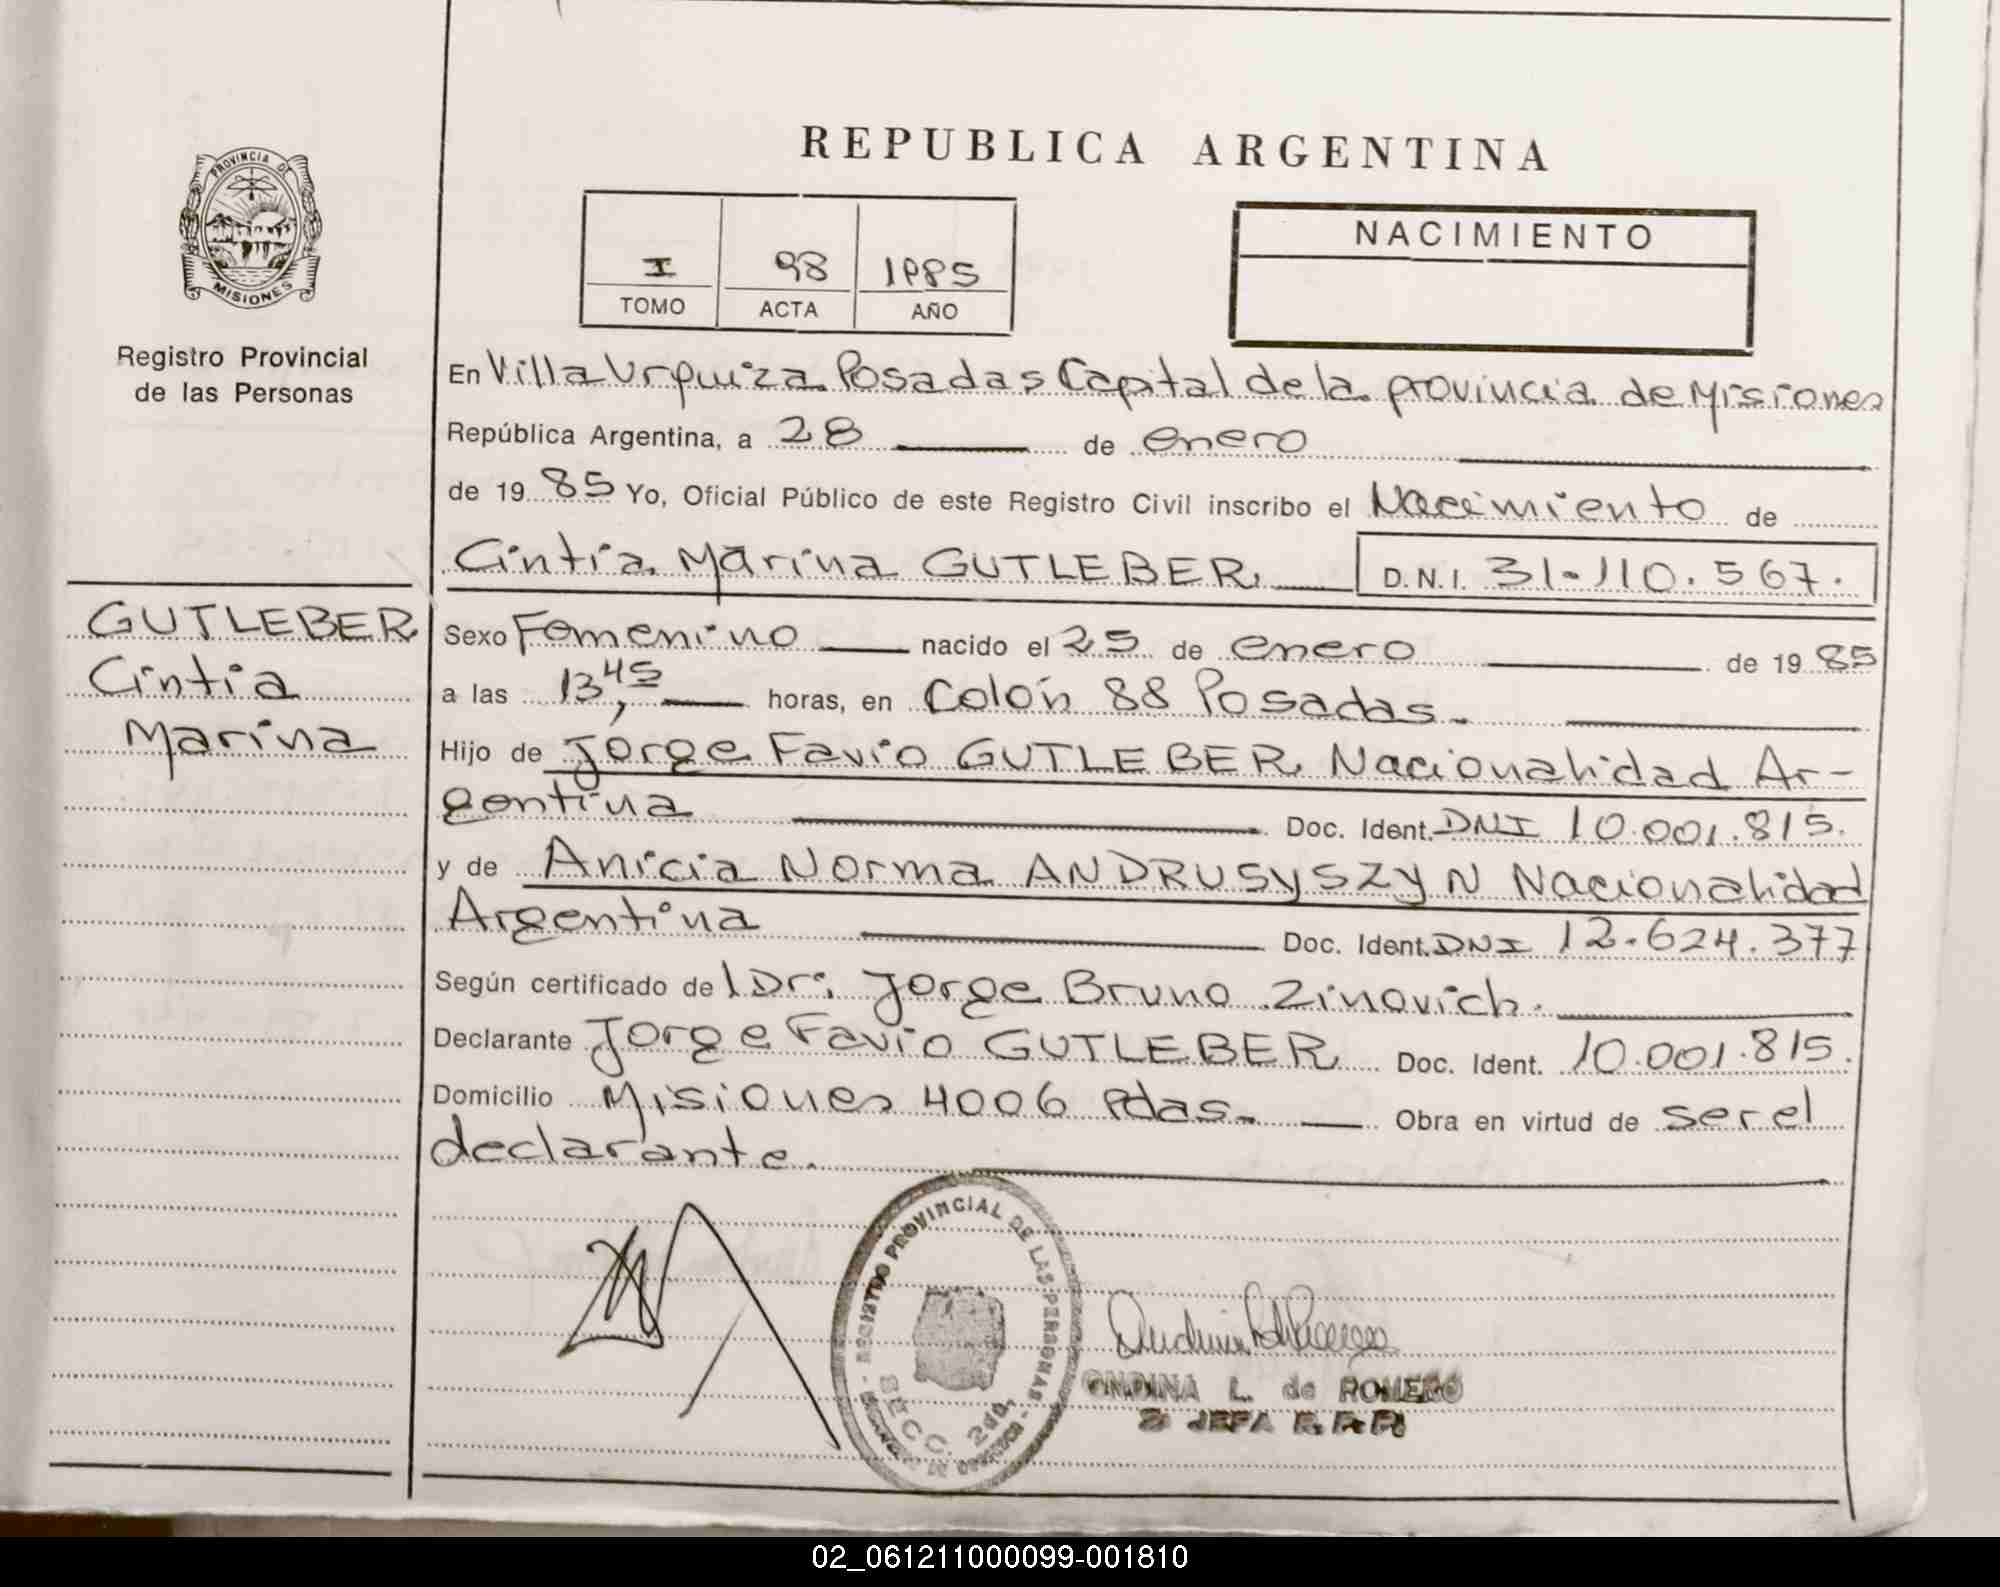 PROVINCIA DE
MISIONES
Registro Provincial
de las Personas
GUTLEBER
Cintia
Marina
REPUBLICA ARGENTINA
I 98 1985
TOMO ACTA AÑO
NACIMIENTO
En Villa Urquiza Posadas Capital de la provincia de Misiones
República Argentina, a 28 de enero
de 1985 Yo, Oficial Público de este Registro Civil inscribo el Nacimiento de
Cintia Marina GUTLEBER D.N.I. 31.110.567.
Sexo Femenino nacido el 25 de enero de 1985
a las 13,45 horas, en Colón 88 Posadas.
Hijo de Jorge Favio GUTLEBER Nacionalidad Ar-
gentina Doc. Ident. DNI 10.001.815.
y de Anicia Norma ANDRUSYSZYN Nacionalidad
Argentina Doc. Ident. DNI 12.624.377
Según certificado del Dr. Jorge Bruno Zinovich.
Declarante Jorge Favio GUTLEBER Doc. Ident. 10.001.815.
Domicilio Misiones 4006 Pdas. Obra en virtud de ser el
declarante.
REGISTRO PROVINCIAL DE LAS PERSONAS
SECC. 2da.
ONDINA L. de ROMERO
JEFA R.P.P.
02_061211000099-001810